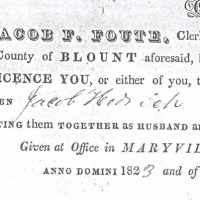 JACOB F. FOUTE, Clerk
County of BLOUNT aforesaid,
LICENCE YOU, or either of you, t
EN Jacob
TING them TOGETHER as HUSBAND a
Given at Office in MARYVIL
ANNO DOMINI 1823 and of